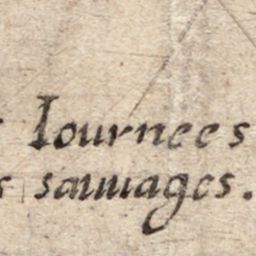 Iournees
sauuages.